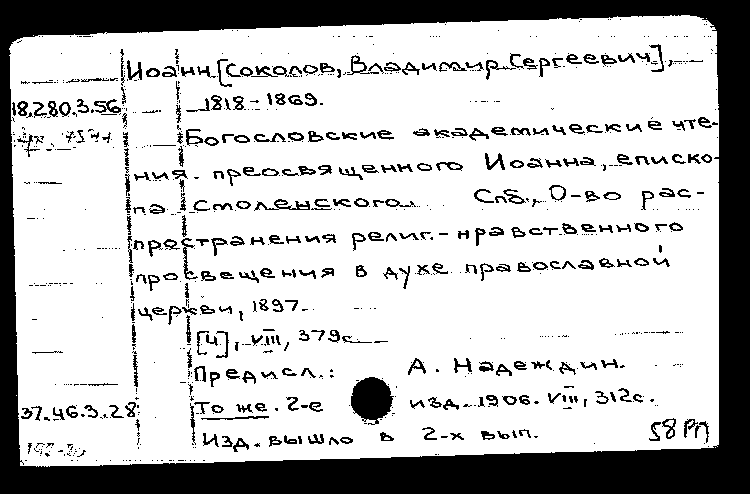 Иоанн [Соколов, Владимир Сергеевич],
18.280.3.56 1818-1869.
Богословские академические чте-
ния. преосвященного Иоанна, еписко-
па Смоленского. Спб., О-во рас-
пространения религ.-нравственного
просвещения в духе православной
церкви, 1897.
[4], VIII, 379с.
Предисл.: А. Надеждин.
37.46.3.28 То же. 2-е изд. 1906. VIII, 312с.
Изд. вышло в 2-х вып. 58 РП